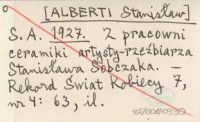 [ALBERTI Stanisław]
S. A. 1927. Z pracowni
ceramiki artysty-rzeźbiarza
Stanisława Sobczaka. –
Rekord Świat Kobiecy – 7,
nr 4: 63, il.